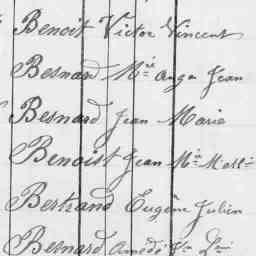 Benoit Victor Vincent
Besnard Mie Ange Jean
Besnard Jean Marie
Benoist Jean Mie
Bertrand Eugène Julien
Besnard Amédé